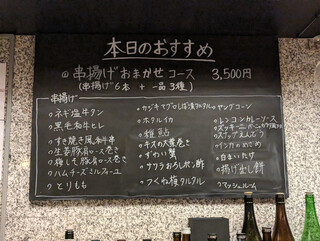 本日のおすすめ
◎串揚げおまかせコース 3,500円
(串揚げ6本 + 一品3種)
串揚げ
。ネギ塩牛タン
。黒毛和牛ヒレ
。すき焼き風和牛串
。生姜豚肩ロース巻き
。梅しそ豚肩ロース巻き
。ハムチーズミルフィーユ
。とりもも
。カジキマグロしば漬タルタル
。ホタルイカ
。稚鮎
。チーズの大葉巻き
。ずわい蟹
。サクラおろしポン酢
。つくね梅タルタル
。ヤングコーン
。レンコンカレーソース
。ズッキーニ
。スナップえんどう
。インカのめざめ
。白まいたけ
。揚げ出し餅
。マッシュルーム